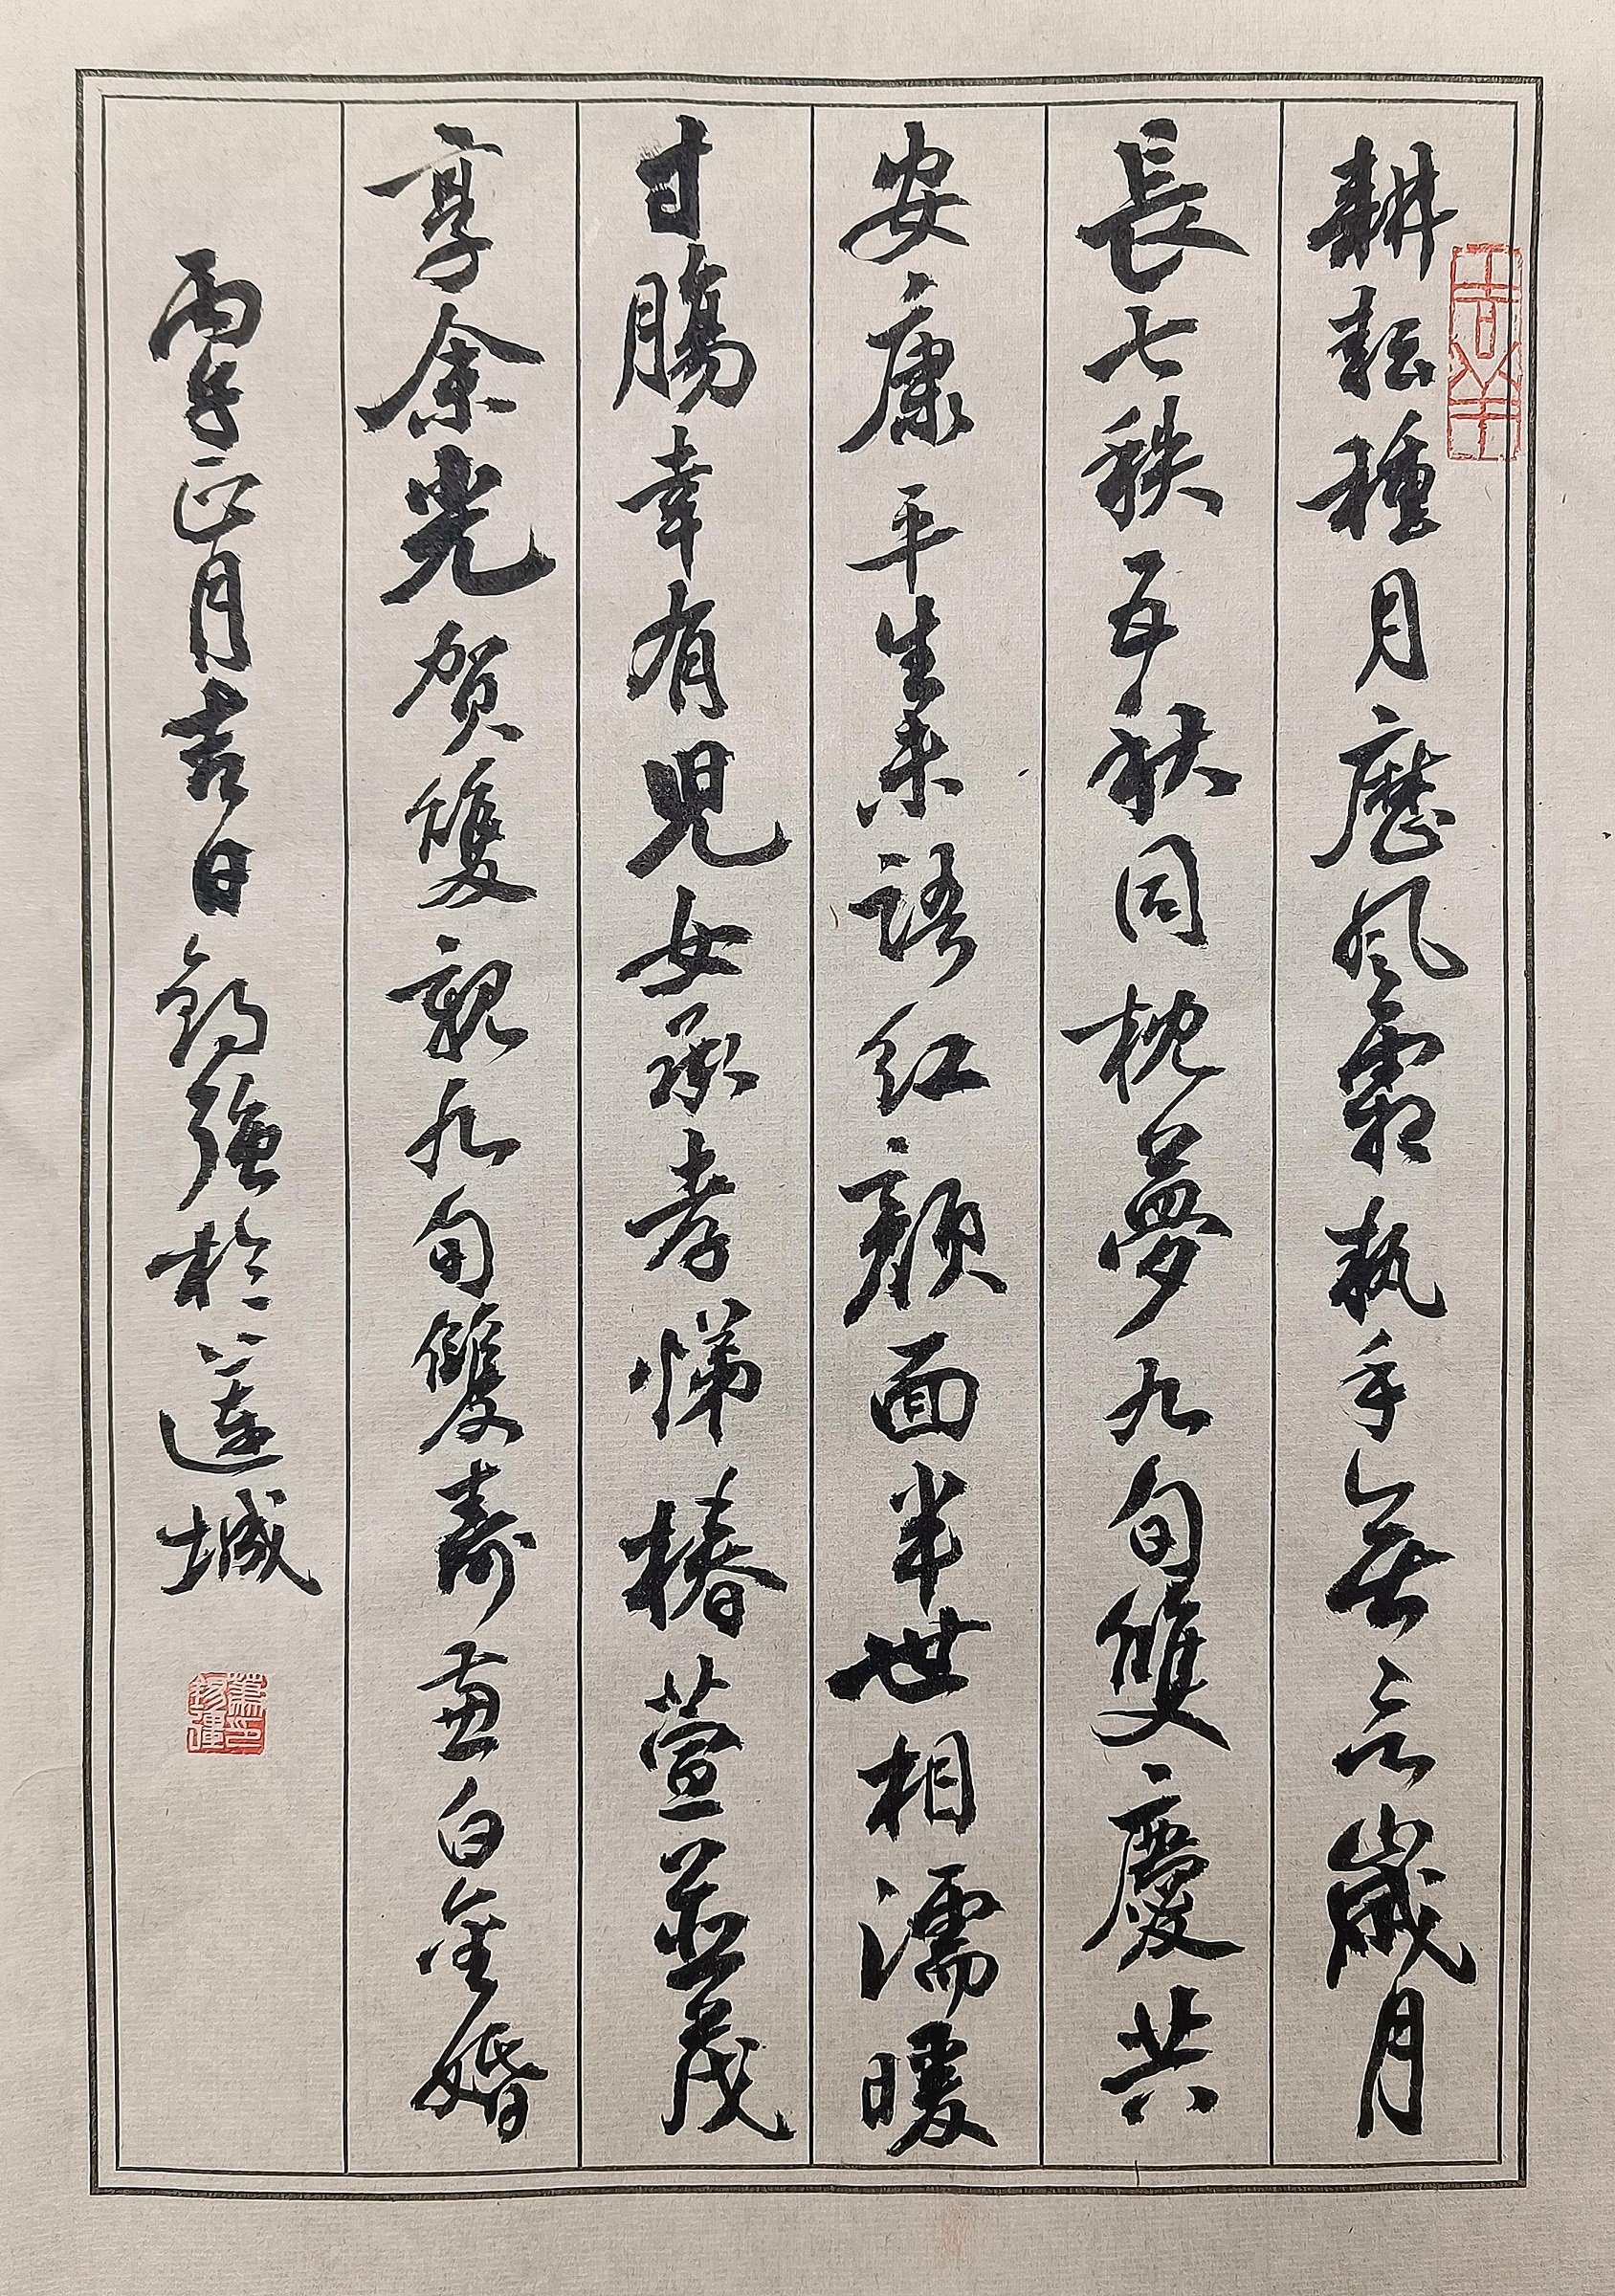 耕耘種月歷風霜執手無言歲月
長七秩五秋同枕夢九旬雙慶共
安康平生未語紅顏面半世相濡暖
寸腸幸有兒女承孝悌椿萱並茂
享余光賀雙親九旬雙壽畫白金婚
丙午正月吉日錫強於蓮城